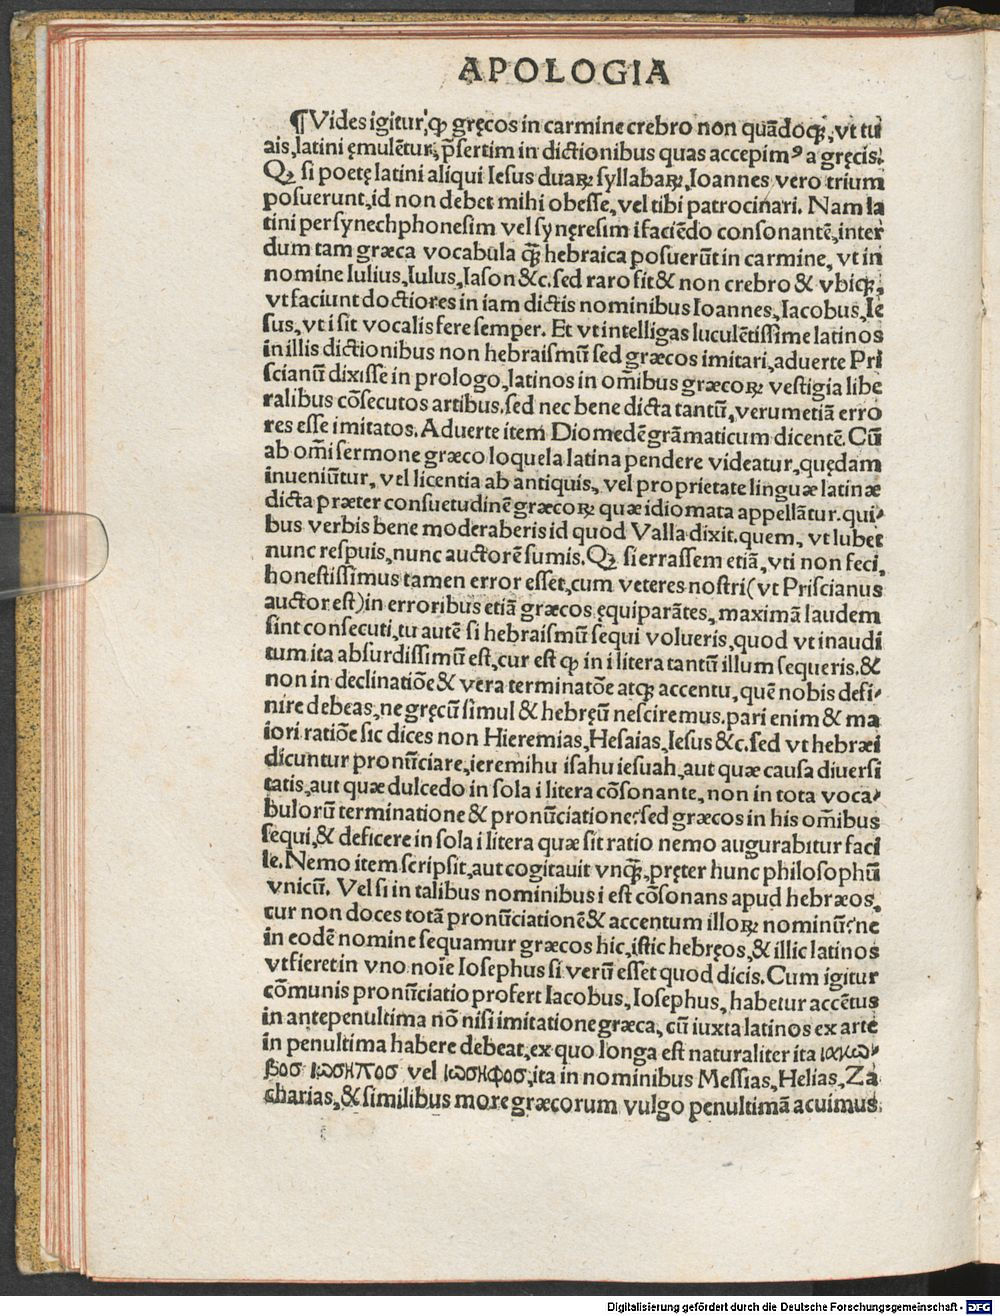 APOLOGIA
¶Vides igitur, ꝙ gręcos in carmine crebro non quãdoqꝫ, vt tu
ais, latini ęmulẽtur, p̃sertim in dictionibus quas accepimꝰ a gręcis.
Qꝫ si poetę latini aliqui Iesus duaꝝ syllabaꝝ, Ioannes vero trium
posuerunt, id non debet mihi obesse, vel tibi patrocinari. Nam la
tini per synechphonesim vel synęresim i faciẽdo consonantẽ, inter
dum tam græca vocabula q̃ꝫ hebraica posuerũt in carmine, vt in
nomine Iulius, Iulus, Iason &c. sed raro fit & non crebro & vbiqꝫ,
vt faciunt doctiores in iam dictis nominibus Ioannes, Iacobus, Ie
sus, vt i sit vocalis fere semper. Et vt intelligas luculẽtissime latinos
in illis dictionibus non hebraismũ sed græcos imitari, aduerte Pri
scianũ dixisse in prologo, latinos in om̃ibus græcoꝝ vestigia libe
ralibus cõsecutos artibus. sed nec bene dicta tantũ, verumetiã erro
res esse imitatos. Aduerte item Diomedẽ grãmaticum dicentẽ. Cũ
ab om̃i sermone græco loquela latina pendere videatur, quędam
inueniũtur, vel licentia ab antiquis, vel proprietate linguæ latinæ
dicta præter consuetudinẽ græcoꝝ quæ idiomata appellãtur. qui-
bus verbis bene moderaberis id quod Valla dixit. quem, vt lubet
nunc respuis, nunc auctorẽ sumis. Qꝫ si errassem etiã, vti non feci,
honestissimus tamen error esset, cum veteres nostri (vt Priscianus
auctor est) in erroribus etiã græcos ęquiparãtes, maximã laudem
sint consecuti, tu autẽ si hebraismũ sequi volueris, quod vt inaudi
tum ita absurdissimũ est, cur est ꝙ in i litera tantũ illum sequeris. &
non in declinatiõe & vera terminatõe atqꝫ accentu, quẽ nobis defi-
nire debeas, ne gręcũ simul & hebręũ nesciremus. pari enim & ma
iori ratiõe sic dices non Hieremias, Hesaias, Iesus &c. sed vt hebræi
dicuntur pronũciare, ieremihu isahu iesuah, aut quæ causa diuersi
tatis, aut quæ dulcedo in sola i litera cõsonante, non in tota voca-
bulorũ terminatione & pronũciatione? sed græcos in his om̃ibus
sequi, & deficere in sola i litera quæ sit ratio nemo augurabitur faci
le. Nemo item scripsit, aut cogitauit vnq̃ꝫ, pręter hunc philosophũ
vnicũ. Vel si in talibus nominibus i est cõsonans apud hebræos,
cur non doces totã pronũciationẽ & accentum illoꝝ nominũ? ne
in eodẽ nomine sequamur græcos hic, istic hebręos, & illic latinos
vt fieret in vno noĩe Iosephus si verũ esset quod dicis. Cum igitur
cõmunis pronũciatio profert Iacobus, Iosephus, habetur accẽtus
in antepenultima nõ nisi imitatione græca, cũ iuxta latinos ex arte
in penultima habere debeat, ex quo longa est naturaliter ita ιακω-
βοσ ιωσηποσ vel ιωσηφοσ, ita in nominibus Messias, Helias, Za
charias, & similibus more græcorum vulgo penultimã acuimus.
Digitalisierung gefördert durch die Deutsche Forschungsgemeinschaft - DFG